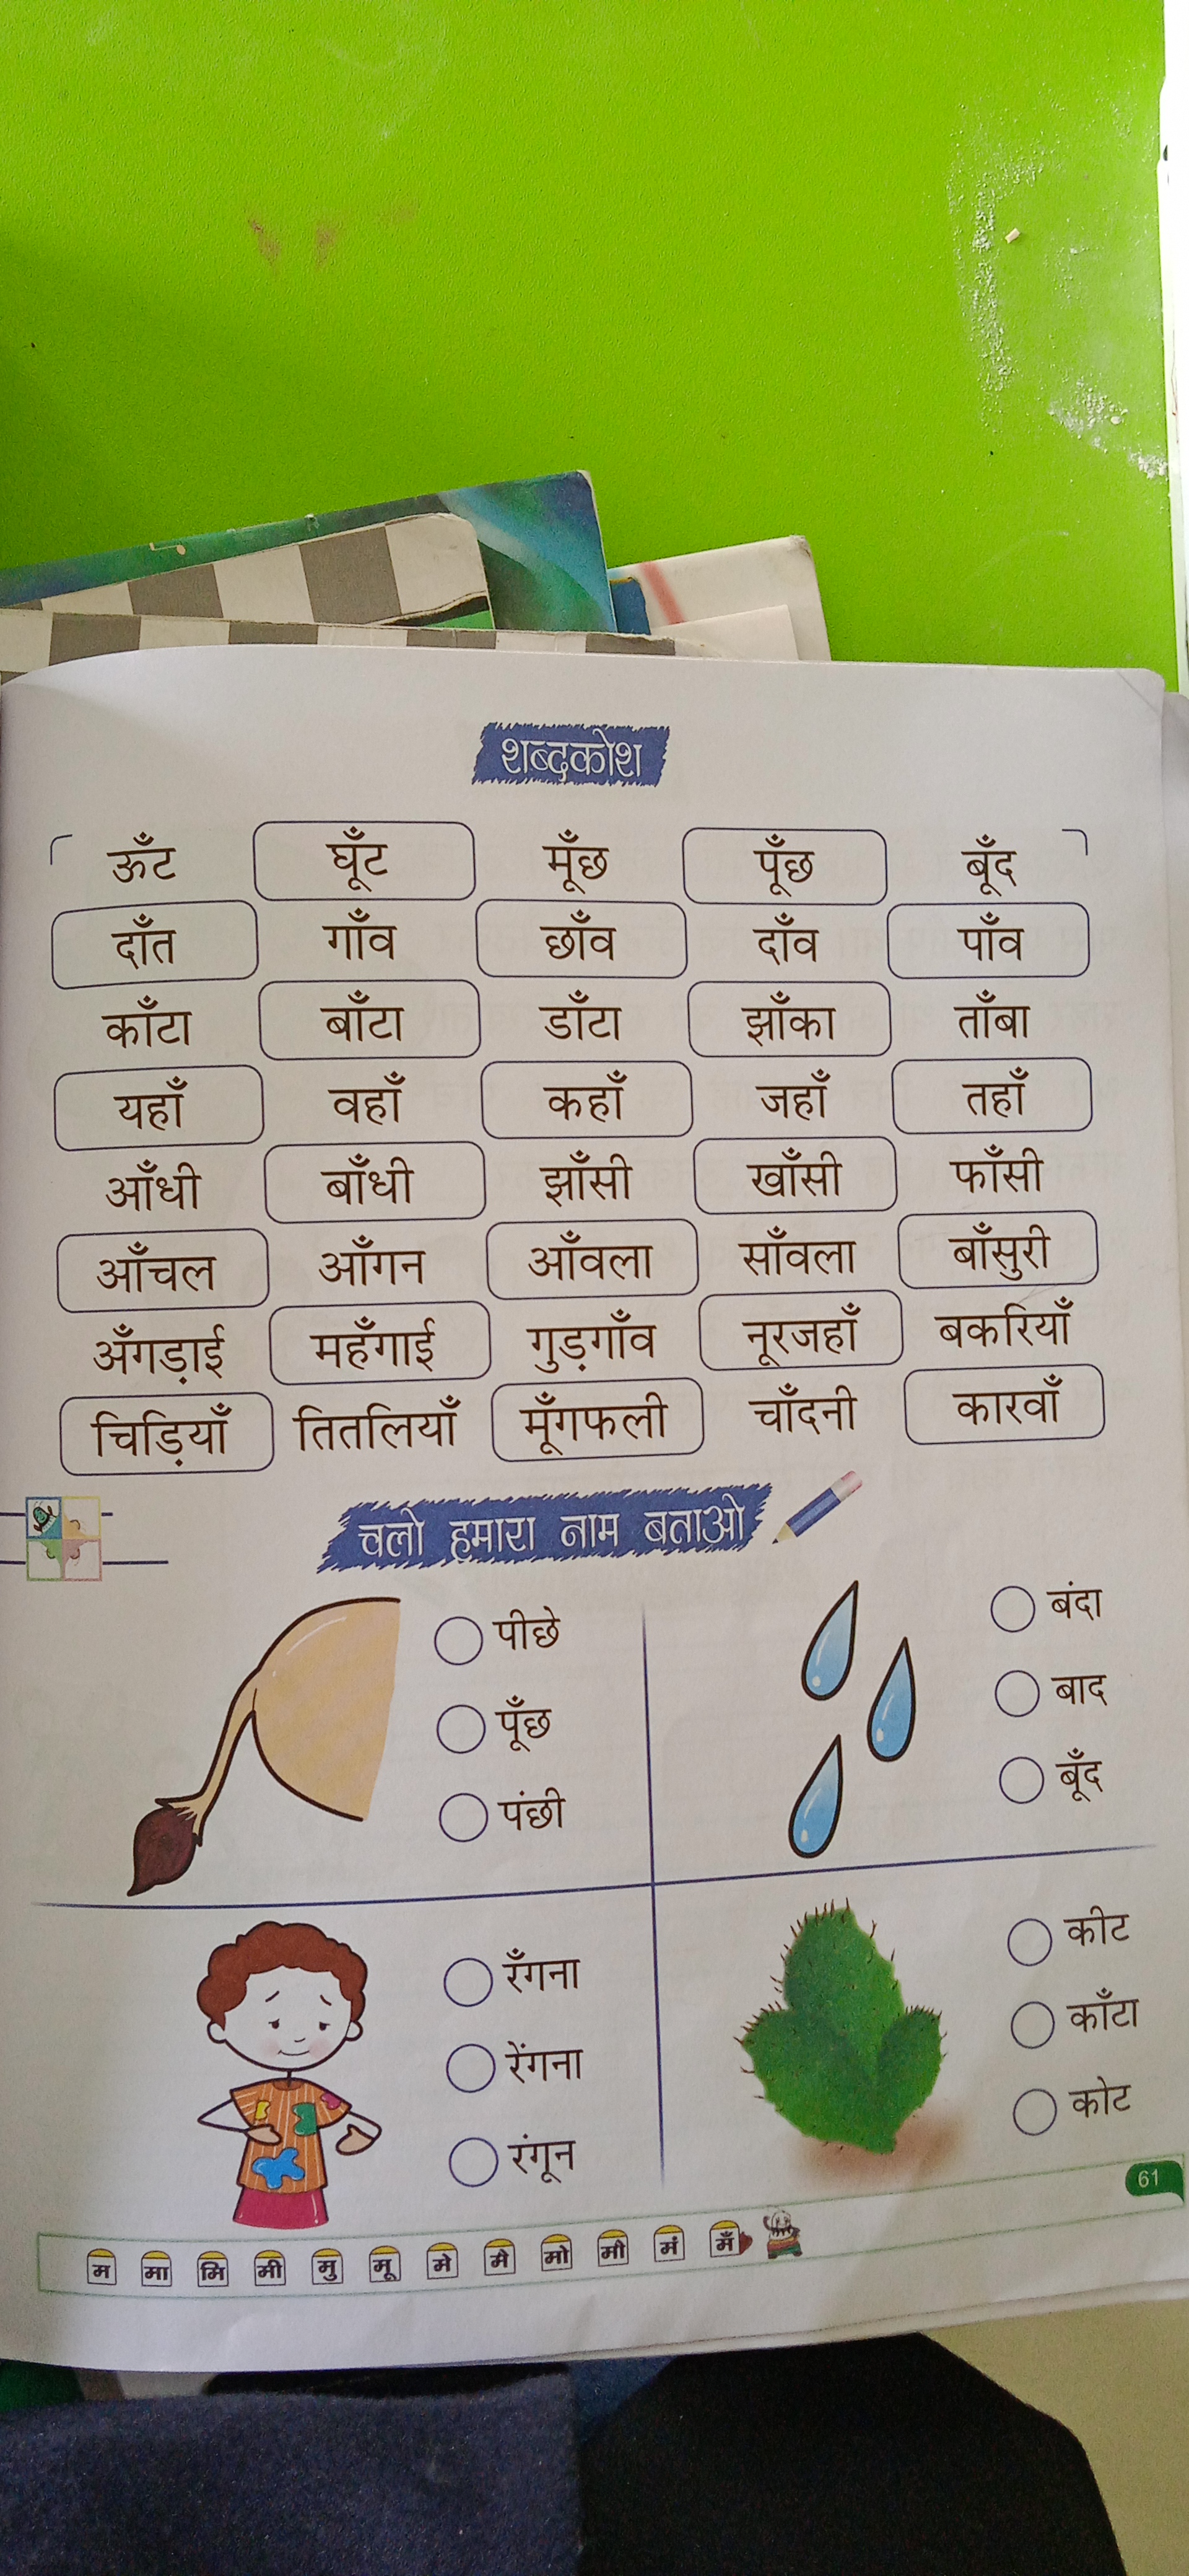 शब्दकोश
ऊँट घूँट मूँछ पूँछ बूँद
दाँत गाँव छाँव दाँव पाँव
काँटा बाँटा डाँटा झाँका ताँबा
यहाँ वहाँ कहाँ जहाँ तहाँ
आँधी बाँधी झाँसी खाँसी फाँसी
आँचल आँगन आँवला साँवला बाँसुरी
अँगड़ाई महँगाई गुड़गाँव नूरजहाँ बकरियाँ
चिड़ियाँ तितलियाँ मूँगफली चाँदनी कारवाँ
चलो हमारा नाम बताओ
पीछे
पूँछ
पंछी
बंदा
बाद
बूँद
रँगना
रेंगना
रंगून
कीट
काँटा
कोट
61
म मा मि मी मु मू मे मै मो मौ मं मँ